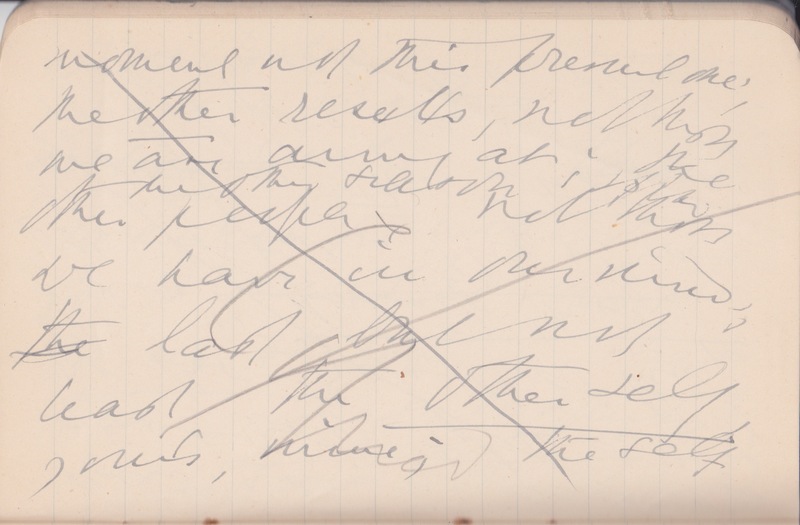 moment not this present one;
the other results, not those
we are aiming at; the
the other season, not this
other people not those
we have in our mind;
the last but not
least the other self
yours, the self